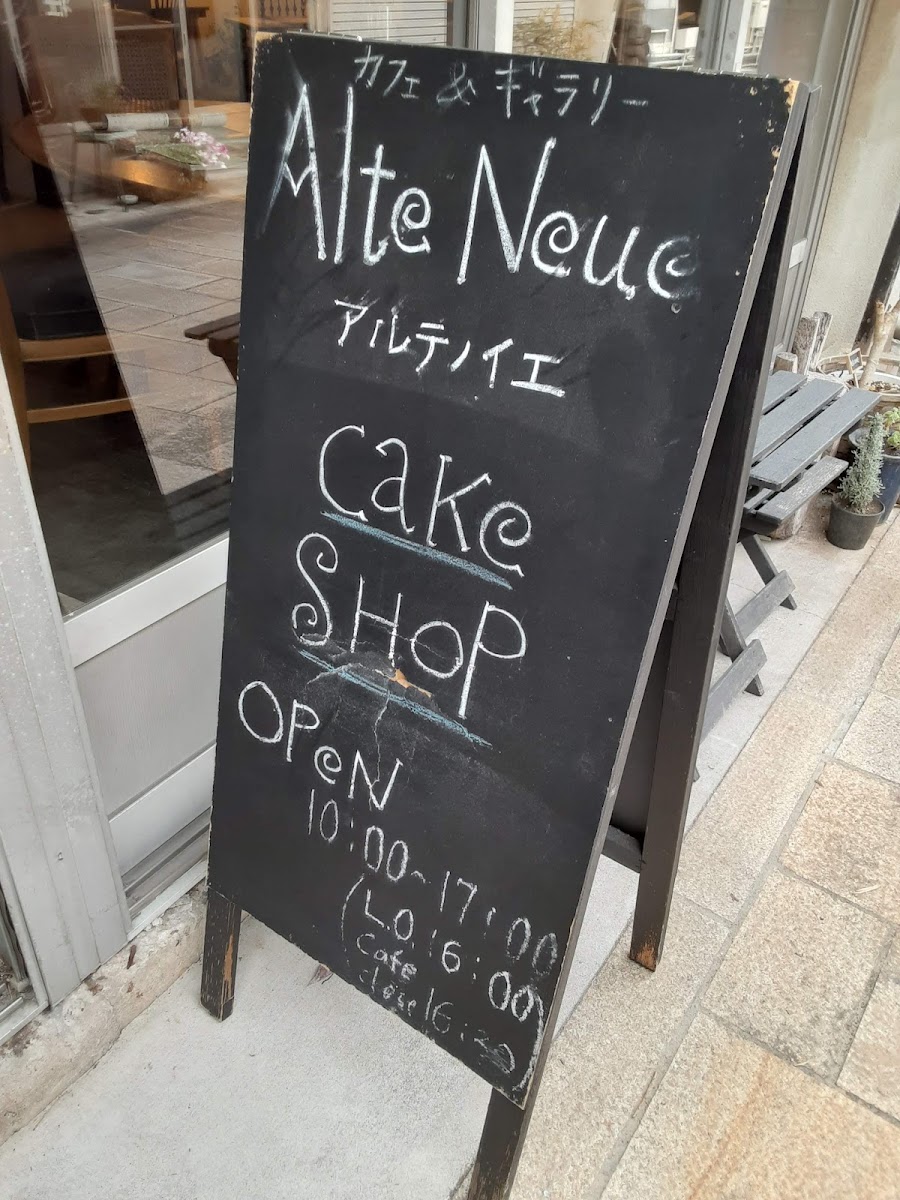 カフェ & ギャラリー
Alte Neue
アルテノイエ
Cake
SHOP
OPeN
10:00~17:00
(L.O. 16:00
Cafe
close 16:20)